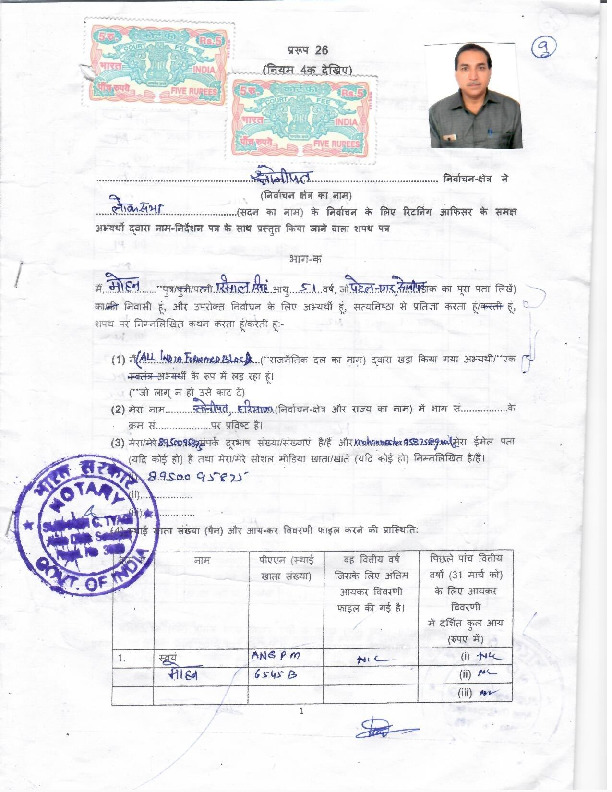 9
5 रु.
Rs.5
COURT FEE
भारत INDIA
पाँच रुपये FIVE RUPEES
5 रु.
Rs.5
COURT FEE
भारत INDIA
पाँच रुपये FIVE RUPEES
प्ररूप 26
(नियम 4क देखिए)
सोनीपत निर्वाचन-क्षेत्र से
(निर्वाचन क्षेत्र का नाम)
लोकसभा (सदन का नाम) के निर्वाचन के लिए रिटर्निंग आफिसर के समक्ष
अभ्यर्थी द्वारा नाम-निर्देशन पत्र के साथ प्रस्तुत किया जाने वाला शपथ पत्र
भाग-क
मैं, मोहन **पुत्र/पुत्री/पत्नी आयु 51 वर्ष, जो (डाक का पूरा पता लिखें)
का/की निवासी हूं, और उपरोक्त निर्वाचन के लिए अभ्यर्थी हूं, सत्यनिष्ठा से प्रतिज्ञा करता हूं/करती हूं,
शपथ पर निम्नलिखित कथन करता हूं/करती हूं:-
(1) मैं (All India Forward Block (**राजनैतिक दल का नाम) द्वारा खड़ा किया गया अभ्यर्थी/**एक
स्वतंत्र अभ्यर्थी के रूप में लड़ रहा हूं।
(**जो लागू न हो उसे काट दें)
(2) मेरा नाम सोनीपत, हरियाणा (निर्वाचन-क्षेत्र और राज्य का नाम) में भाग सं. के
क्रम सं. पर प्रविष्ट है।
(3) मेरा/मेरे संपर्क दूरभाष संख्या/संख्याएं है/हैं और मेरा ईमेल पता
(यदि कोई हो) है तथा मेरा/मेरे सोशल मीडिया खाता/खाते (यदि कोई हो) निम्नलिखित है/हैं।
8950095875
(ii)
(iii)
(4) स्थाई खाता संख्या (पैन) और आय-कर विवरणी फाइल करने की प्रास्थिति:
भारत सरकार
NOTARY
GOVT. OF INDIA
नाम
पीएएन (स्थाई
खाता संख्या)
वह वित्तीय वर्ष
जिसके लिए अंतिम
आयकर विवरणी
फाइल की गई है।
पिछले पांच वित्तीय
वर्षों (31 मार्च को)
के लिए आयकर
विवरणी
में दर्शित कुल आय
(रुपए में)
1. स्वयं ANGPM NIL (i) NIL
मोहन 6545B (ii) NIL
(iii) NIL
1